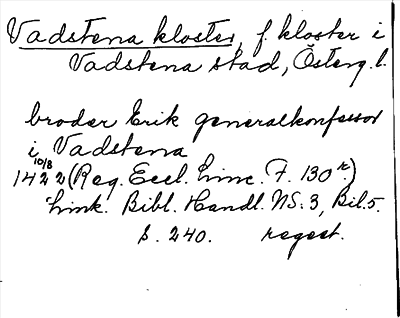 Vadstena kloster, f. kloster i
Vadstena stad, Österg. l.
broder Erik generalkonfessor
i Vadstena
10/8
1422 (Reg. Eccl. Linc. F. 130 r.)
Link. Bibl. Handl. NS: 3, Bil. 5.
S. 240. regest.